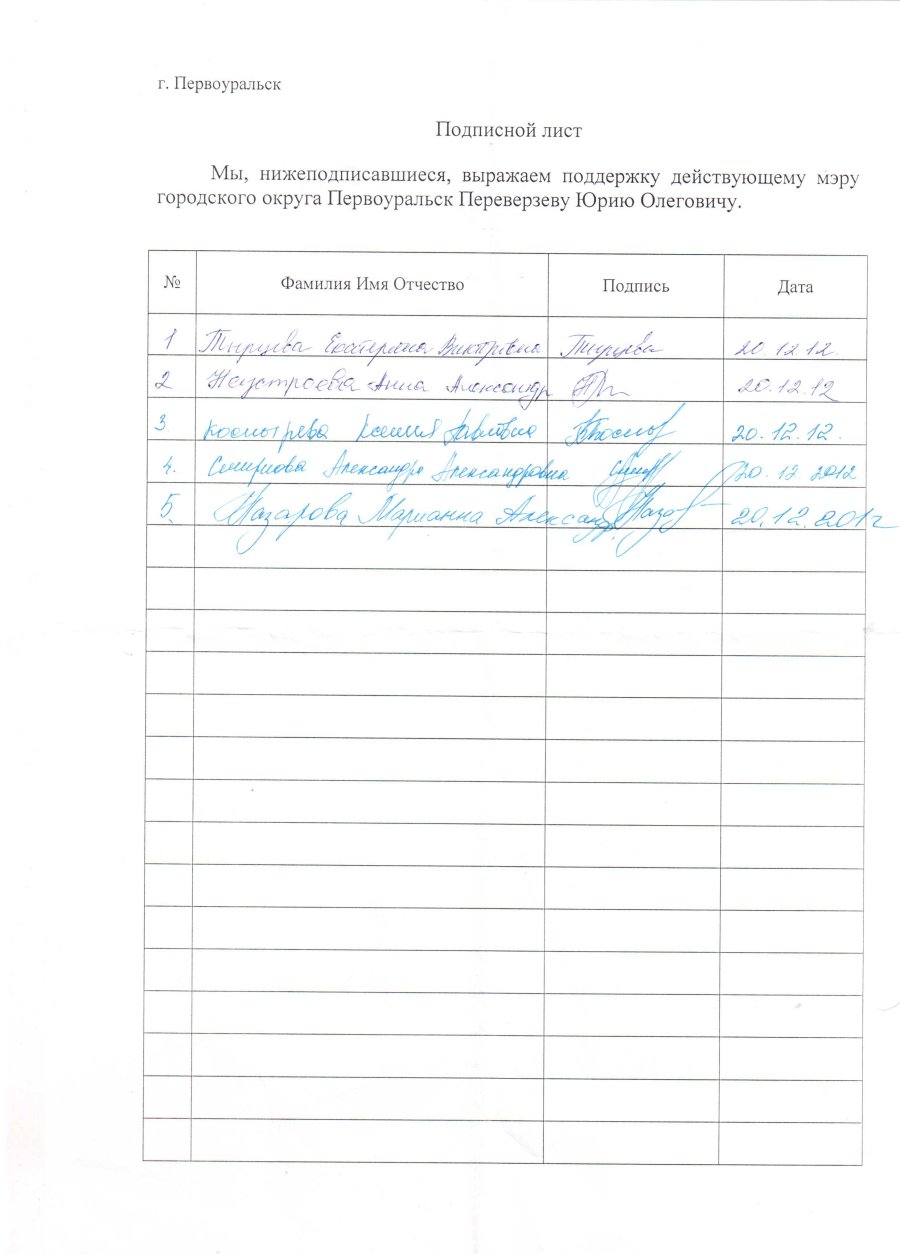 г. Первоуральск
Подписной лист
Мы, нижеподписавшиеся, выражаем поддержку действующему мэру
городского округа Первоуральск Переверзеву Юрию Олеговичу.
№ Фамилия Имя Отчество Подпись Дата
1 Тырцева Екатерина Викторовна Тырцева 20.12.12.
2 Неустроева Анна Александр 20.12.12
3. Ксения Павловна 20.12.12.
4. Смирнова Александра Александровна 20.12.2012
5. Назарова Марианна Александр. 20.12.2012